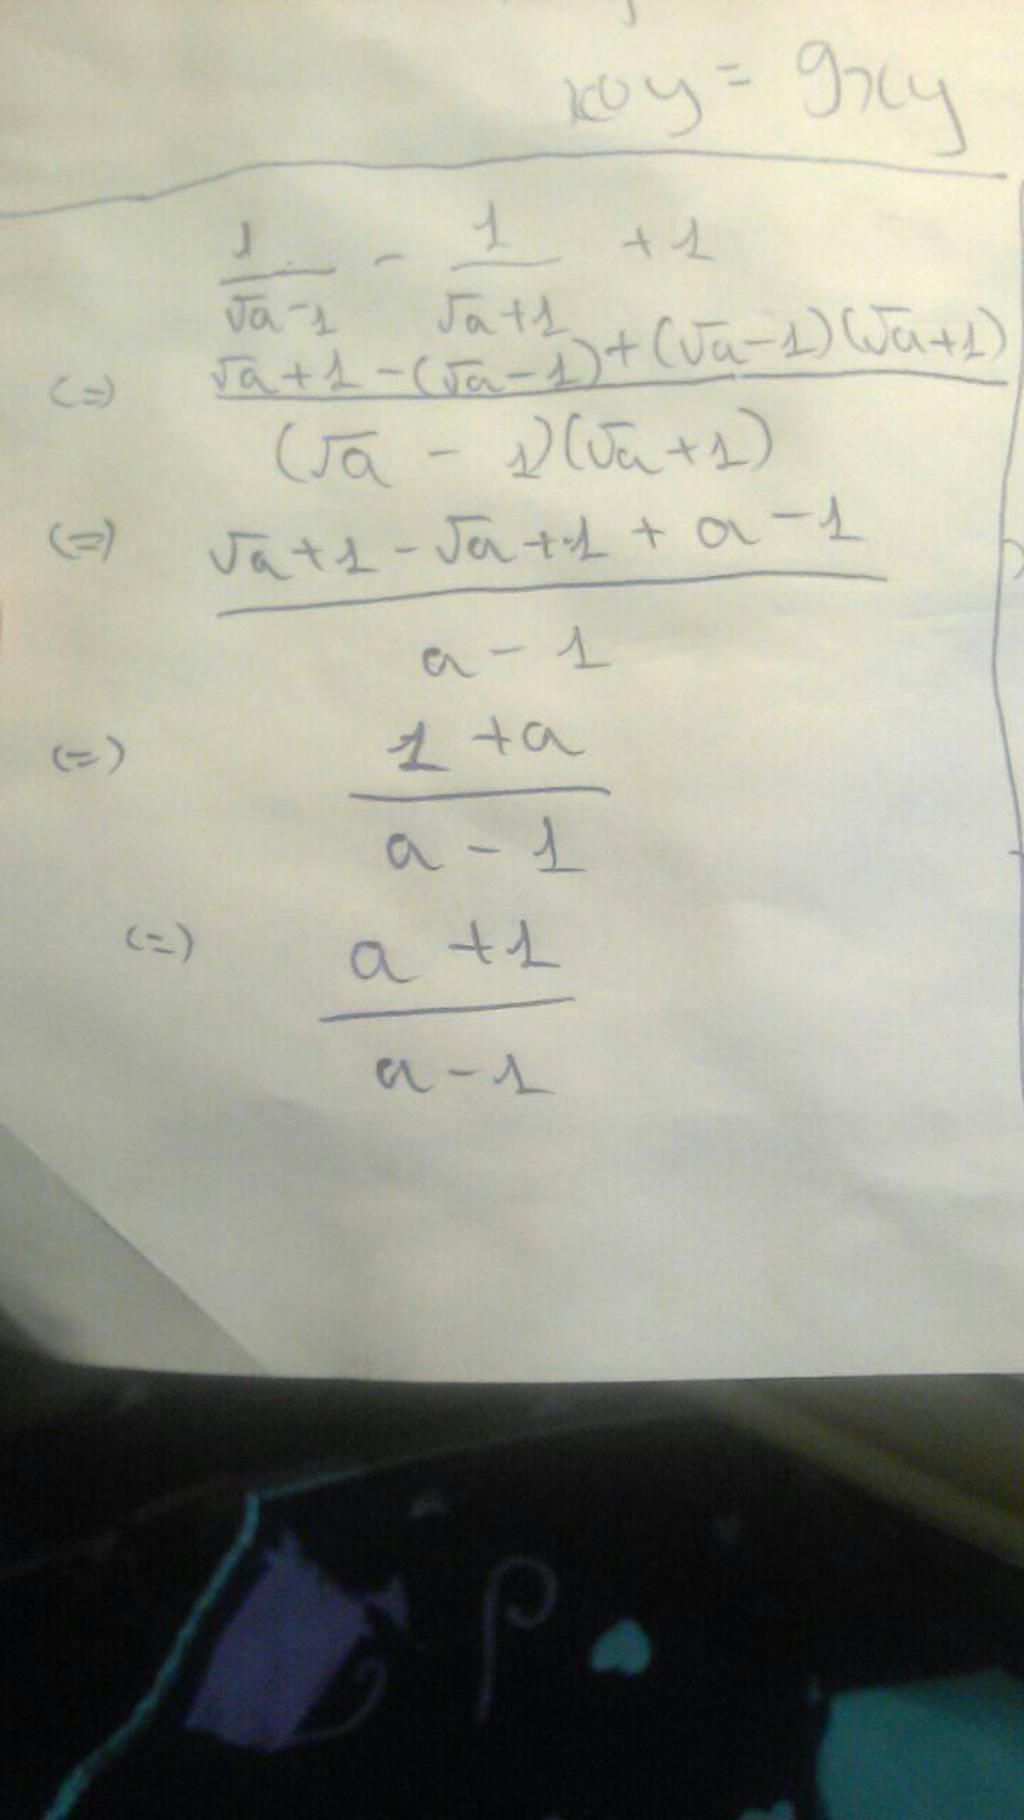 xoy = 9xy
1/(√a-1) - 1/(√a+1) + 1
(=) (√a+1-(√a-1)+(√a-1)(√a+1))/((√a - 1)(√a+1))
(=) (√a+1-√a+1+a-1)/(a-1)
(=) (1+a)/(a-1)
(=) (a+1)/(a-1)